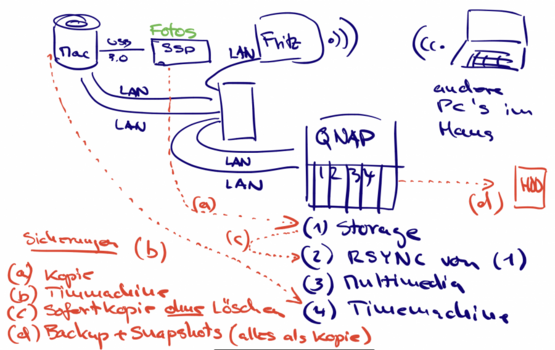 Fotos
Mac
USB
3.0
SSD
LAN
Fritz
LAN
LAN
andere
PC's im
Haus
QNAP
LAN
LAN
1 2 3 4
(a)
(d)
HDD
(1) Storage
(c)
Sicherungen
(b)
(2) RSYNC von (1)
(a) Kopie
(3) Multimedia
(b) Timmachine
(c) Sofortkopie ohne Löschen
(4) Timemachine
(d) Backup + Snapshots (alles als Kopie)